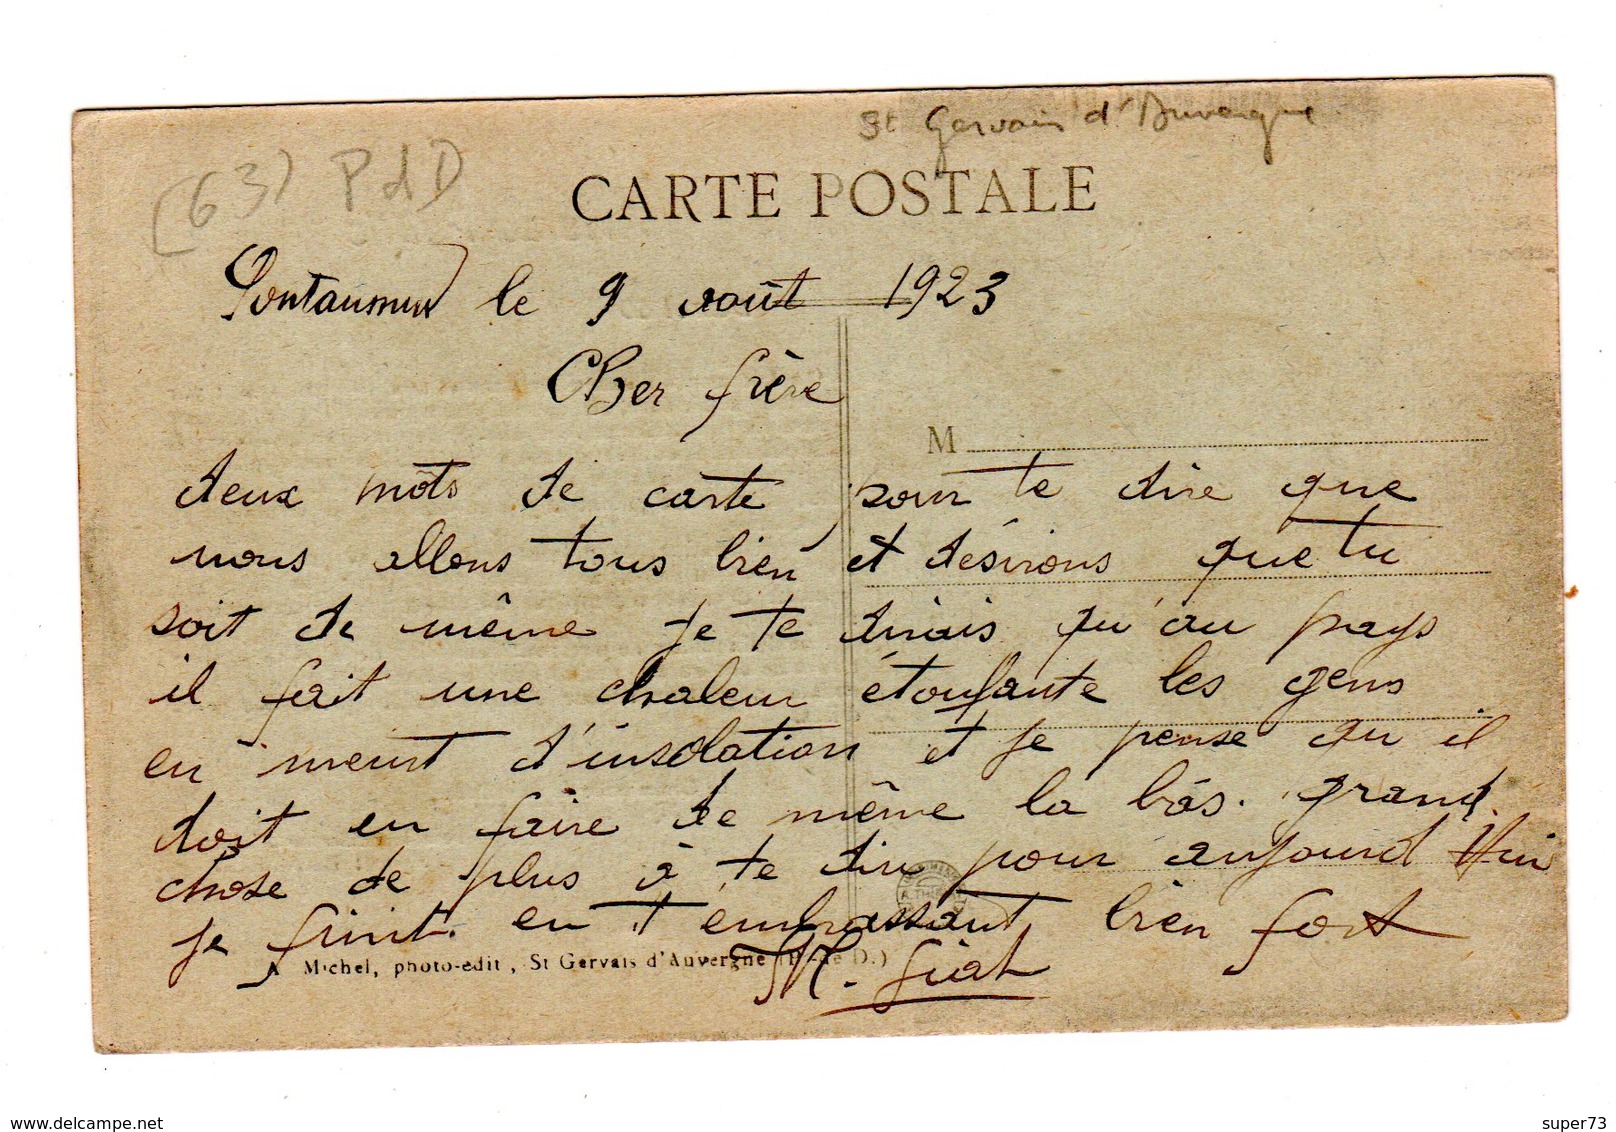 St Gervais d'Auvergne
(63) P d D
CARTE POSTALE
Pontaumur le 9 août 1923
Cher frère
M
deux mots de carte pour te dire que
nous allons tous bien et désirons que tu
soit de même je te dirais qu'au pays
il fait une chaleur étoufante les gens
en meurt d'insolation et je pense qu il
doit en faire de même la bás. grand
chose de plus à te dire pour aujourd'hui
je finit. en t'embrassant bien fort
A Michel, photo-edit, St Gervais d'Auvergne (P.-de D.)
M.
delcampe.net
super73